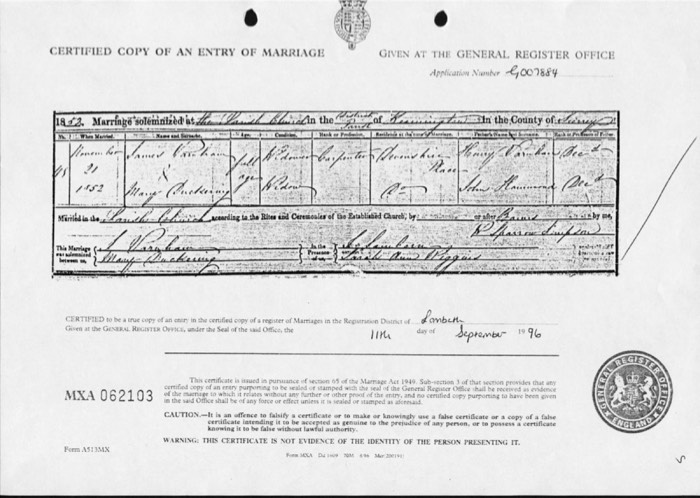 CERTIFIED COPY OF AN ENTRY OF MARRIAGE
GIVEN AT THE GENERAL REGISTER OFFICE
Application Number G007884
1852. Marriage solemnized at the Parish Church in the District Parish of Kennington in the County of Surrey
No. When Married. Name and Surname. Age. Condition. Rank or Profession. Residence at the time of Marriage. Father's Name and Surname. Rank or Profession of Father.
November 21 1852
James Varnham full age Widower Carpenter Devonshire Place Henry Varnham Decd
Mary Duckering Widow Do John Hammond Decd
Married in the Parish Church according to the Rites and Ceremonies of the Established Church, by or after Banns by me,
W Sparrow Simpson
This Marriage was solemnized between us, J Varnham in the Presence
Mary Duckering Sarah Ann Wiggins
CERTIFIED to be a true copy of an entry in the certified copy of a register of Marriages in the Registration District of Lambeth
Given at the GENERAL REGISTER OFFICE, under the Seal of the said Office, the 11th day of September 1996
MXA 062103
This certificate is issued in pursuance of section 65 of the Marriage Act 1949. Sub-section 3 of that section provides that any
certified copy of an entry purporting to be sealed or stamped with the seal of the General Register Office shall be received as evidence
of the marriage to which it relates without any further or other proof of the entry, and no certified copy purporting to have been given
in the said Office shall be of any force or effect unless it is sealed or stamped as aforesaid.
CAUTION.—It is an offence to falsify a certificate or to make or knowingly use a false certificate or a copy of a false
certificate intending it to be accepted as genuine to the prejudice of any person, or to possess a certificate
knowing it to be false without lawful authority.
WARNING: THIS CERTIFICATE IS NOT EVIDENCE OF THE IDENTITY OF THE PERSON PRESENTING IT.
GENERAL REGISTER OFFICE
ENGLAND
Form A513MX
Form MXA